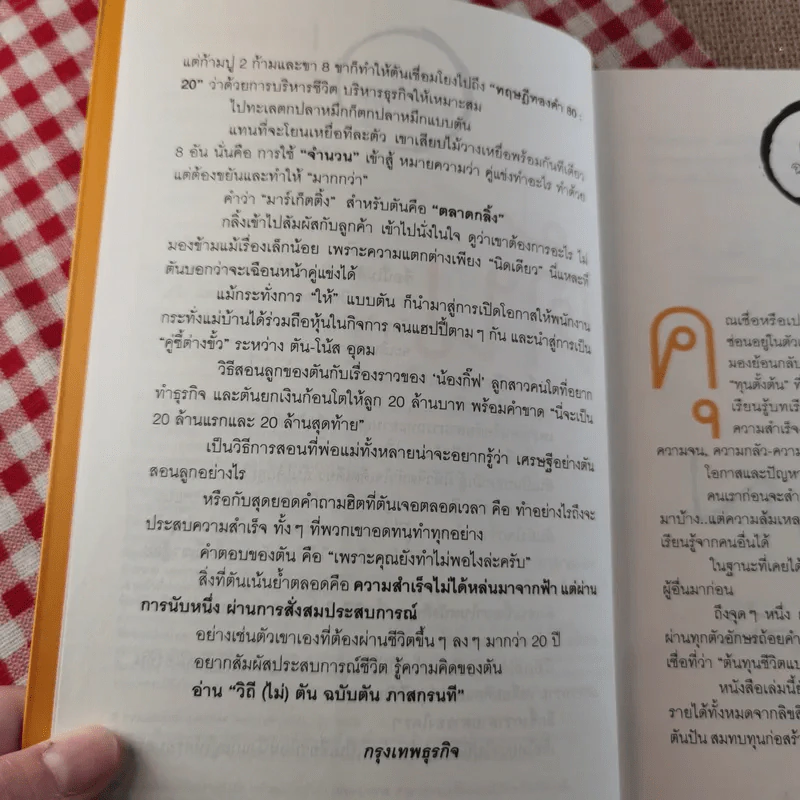 แต่ก้ามปู 2 ก้ามและขา 8 ขาก็ทำให้ตันเชื่อมโยงไปถึง “ทฤษฎีทองคำ 80 :
20” ว่าด้วยการบริหารชีวิต บริหารธุรกิจให้เหมาะสม
ไปทะเลตกปลาหมึกก็ตกปลาหมึกแบบตัน
แทนที่จะโยนเหยื่อทีละตัว เขาเสียบไม้วางเหยื่อพร้อมกันทีเดียว
8 อัน นั่นคือ การใช้ “จำนวน” เข้าสู้ หมายความว่า คู่แข่งทำอะไร ทำด้วย
แต่ต้องขยันและทำให้ “มากกว่า”
คำว่า “มาร์เก็ตติ้ง” สำหรับตันคือ “ตลาดกลิ้ง”
กลิ้งเข้าไปสัมผัสกับลูกค้า เข้าไปนั่งในใจ ดูว่าเขาต้องการอะไร ไม่
มองข้ามแม้เรื่องเล็กน้อย เพราะความแตกต่างเพียง “นิดเดียว” นี่แหละที่
ตันบอกว่าจะเฉือนหน้าคู่แข่งได้
แม้กระทั่งการ “ให้” แบบตัน ก็นำมาสู่การเปิดโอกาสให้พนักงาน
กระทั่งแม่บ้านได้ร่วมถือหุ้นในกิจการ จนแฮปปี้ตามๆ กัน และนำสู่การเป็น
“คู่ซี้ต่างขั้ว” ระหว่าง ตัน-โน้ส อุดม
วิธีสอนลูกของตันกับเรื่องราวของ ‘น้องกิ๊ฟ’ ลูกสาวคนโตที่อยาก
ทำธุรกิจ และตันยกเงินก้อนโตให้ลูก 20 ล้านบาท พร้อมคำขาด “นี่จะเป็น
20 ล้านแรกและ 20 ล้านสุดท้าย”
เป็นวิธีการสอนที่พ่อแม่ทั้งหลายน่าจะอยากรู้ว่า เศรษฐีอย่างตัน
สอนลูกอย่างไร
หรือกับสุดยอดคำถามฮิตที่ตันเจอตลอดเวลา คือ ทำอย่างไรถึงจะ
ประสบความสำเร็จ ทั้งๆ ที่พวกเขาอดทนทำทุกอย่าง
คำตอบของตัน คือ “เพราะคุณยังทำไม่พอไงล่ะครับ”
สิ่งที่ตันเน้นย้ำตลอดคือ ความสำเร็จไม่ได้หล่นมาจากฟ้า แต่ผ่าน
การนับหนึ่ง ผ่านการสั่งสมประสบการณ์
อย่างเช่นตัวเขาเองที่ต้องผ่านชีวิตขึ้นๆ ลงๆ มากว่า 20 ปี
อยากสัมผัสประสบการณ์ชีวิต รู้ความคิดของตัน
อ่าน “วิถี (ไม่) ตัน ฉบับตัน ภาสกรนที”
กรุงเทพธุรกิจ
คุณเชื่อหรือเป
ซ่อนอยู่ในตัว
มองย้อนกลับ
“ทุนตั้งต้น” ที่
เรียนรู้บทเรี
ความสำเร็จ
ความจน, ความกลัว-ความ
โอกาสและปัญหา
คนเราก่อนจะสำ
มาบ้าง..แต่ความล้มเหล
เรียนรู้จากคนอื่นได้
ในฐานะที่เคยได้
ผู้อื่นมาก่อน
ถึงจุดๆ หนึ่ง
ผ่านทุกตัวอักษรถ้อยคำ
เชื่อที่ว่า “ต้นทุนชีวิตแบ
หนังสือเล่มนี้
รายได้ทั้งหมดจากลิขสิ
ตันปัน สมทบทุนก่อสร้า